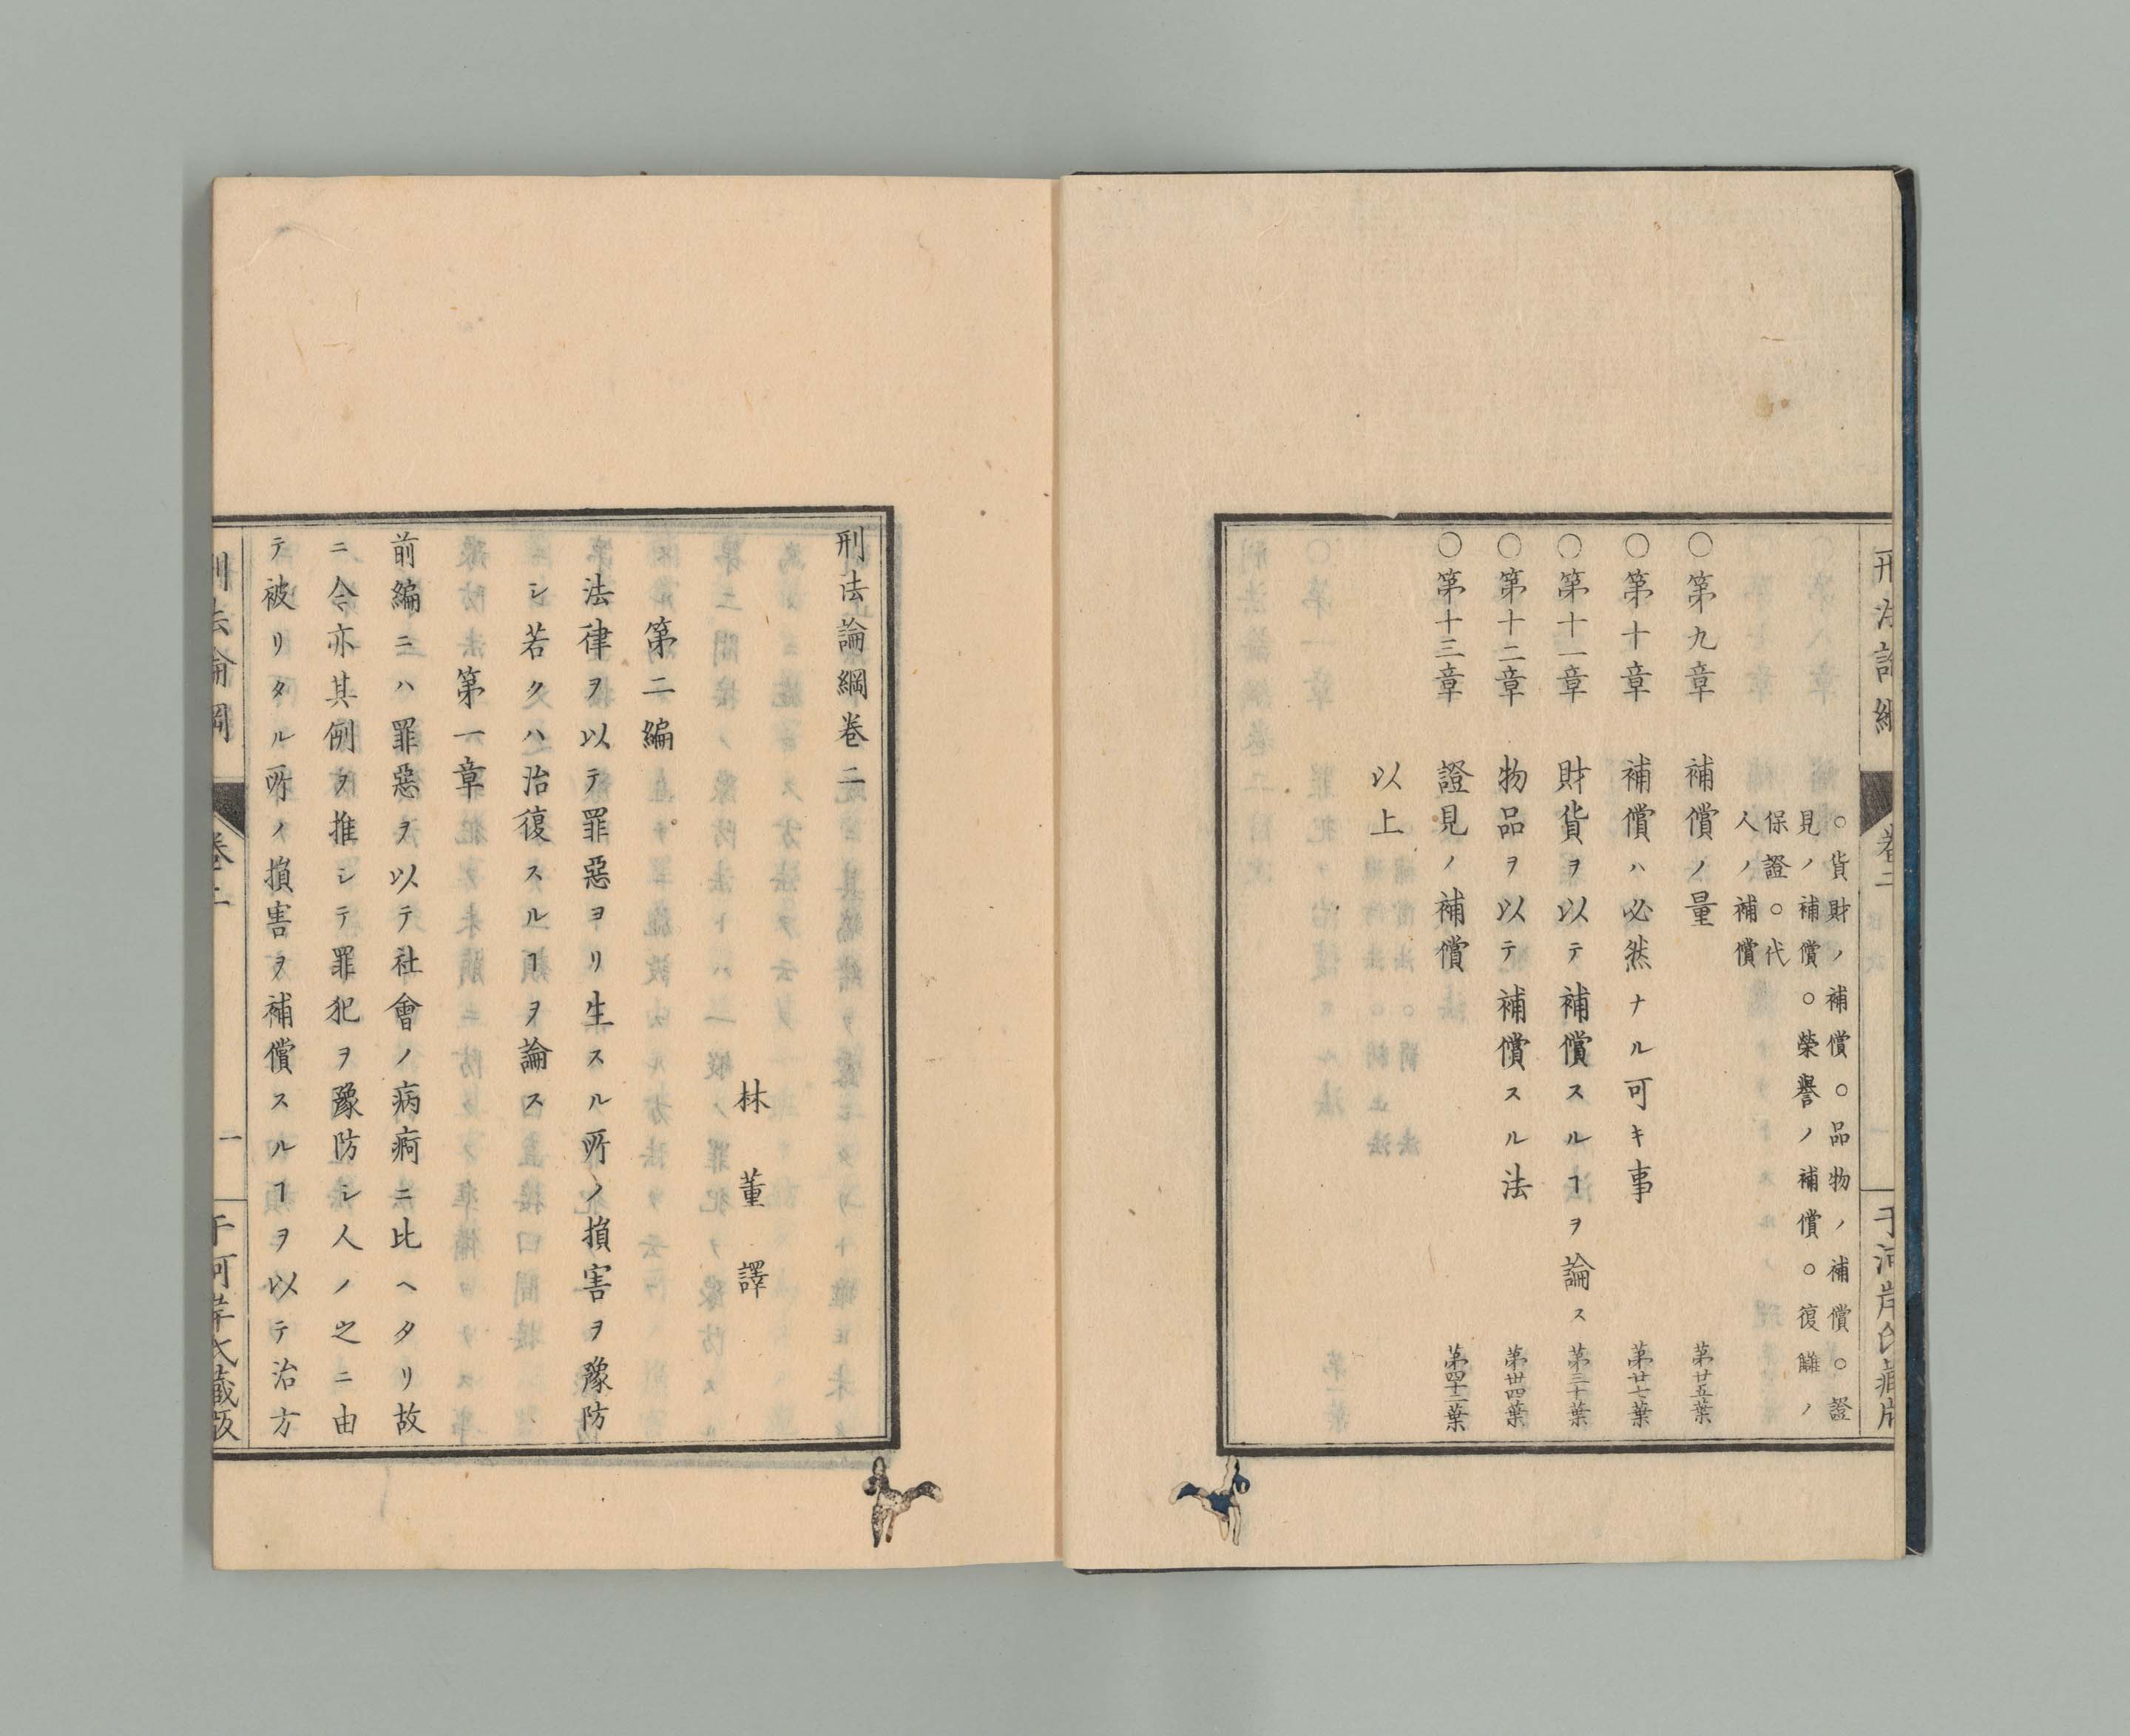 刑法論綱
卷二
千河岸氏藏版
○貨財ノ補償○品物ノ補償○證
見ノ補償○榮譽ノ補償○復讎ノ
保證○代
人ノ補償
○第九章 補償ノ量 第廿五葉
○第十章 補償ハ必然ナル可キ事 第廿七葉
○第十一章 財貨ヲ以テ補償スルヿヲ論ス 第三十葉
○第十二章 物品ヲ以テ補償スル法 第卅四葉
○第十三章 證見ノ補償 第四十二葉
以上
刑法論綱卷二
林董譯
第二編
法律ヲ以テ罪惡ヨリ生スル所ノ損害ヲ豫防
シ若クハ治復スルヿヲ論ス
第一章
前編ニハ罪惡ヲ以テ社會ノ病痾ニ比ヘタリ故
ニ今亦其例ヲ推シテ罪犯ヲ豫防シ人ノ之ニ由
テ被リタル所ノ損害ヲ補償スルヿヲ以テ治方
刑法論綱
卷二
一
千河岸氏藏版